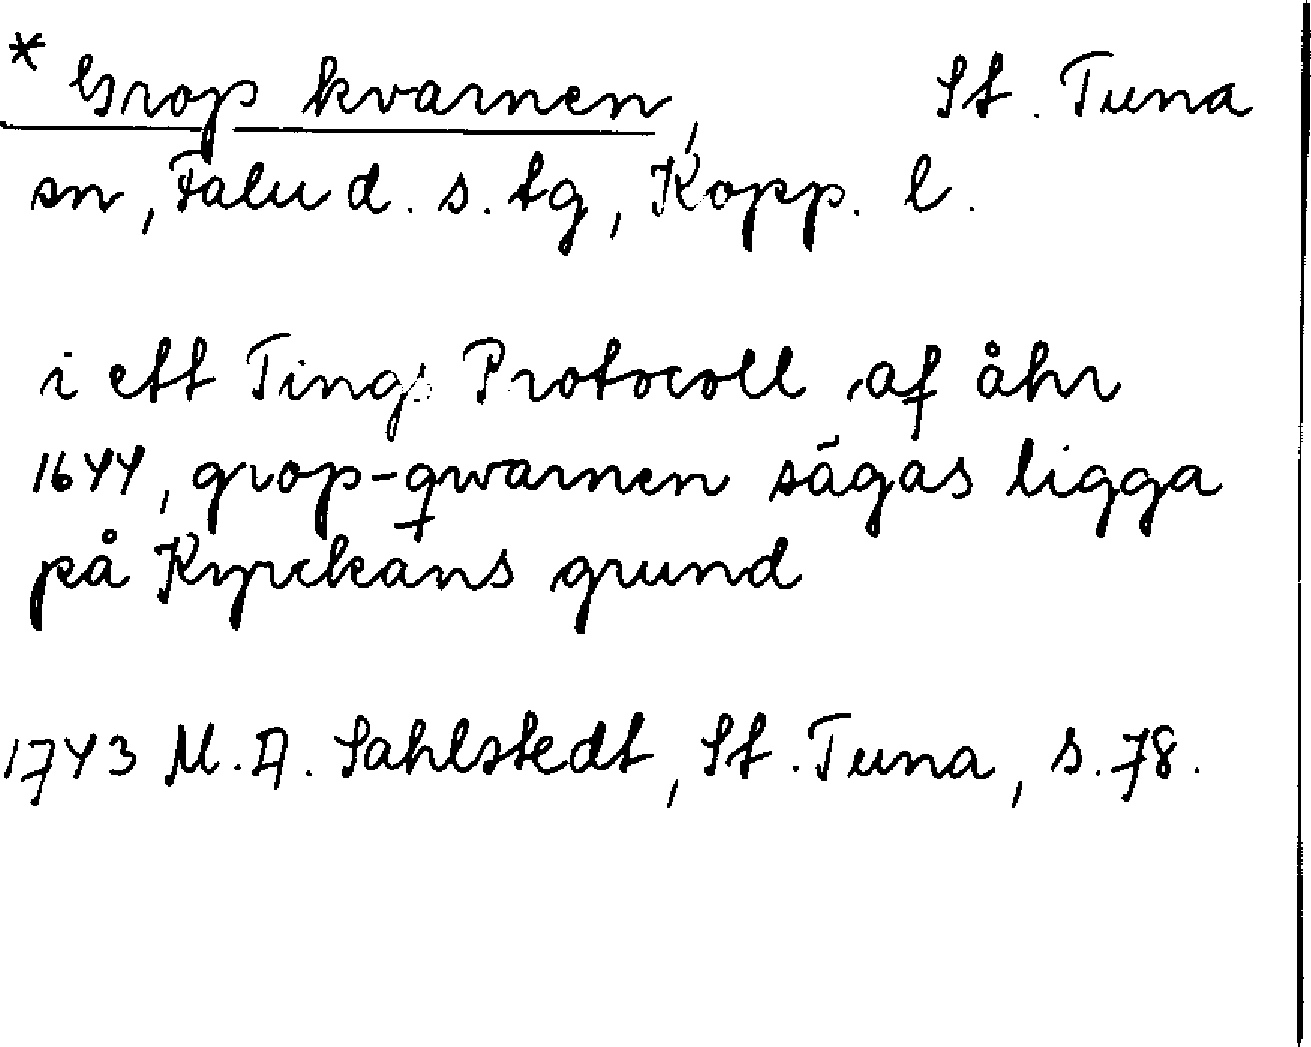 * Grop kvarnen, St. Tuna
sn, Falu d. s. tg, Kopp. l.
i ett Tings Protocoll af åhr
1644, grop-qwarnen sägas ligga
på Kyrckans grund
1743 M. A. Sahlstedt, St. Tuna, s. 78.